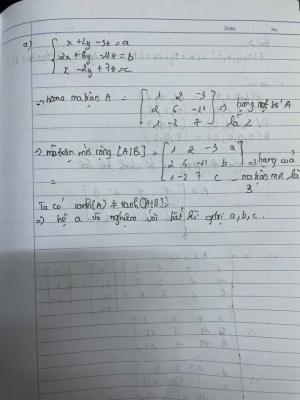 Date No
a) { x + 2y - 3z = a
2x + 6y - 11z = b
x - 2y + 7z = c
=> hàng ma trận A = [ 1 2 -3
2 6 -11 => hạng của A
1 -2 7 ] là 2
=> ma trận mở rộng [A|B] = [ 1 2 -3 a
= 2 6 -11 b => hạng của
1 -2 7 c ] ma trận MR là
3
Ta có rank(A) ≠ rank([A|B])
=> hệ a vô nghiệm với bất kì giá trị a, b, c.